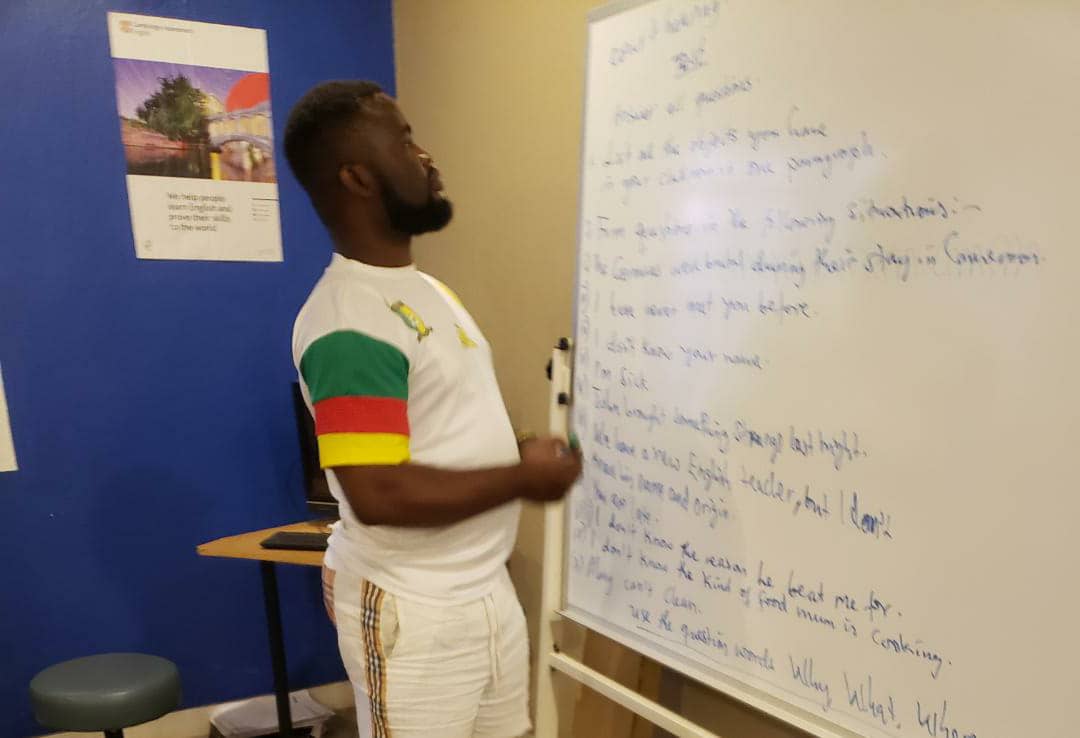 We help people
learn English and
prove their skills
to the world
Test
Answer all questions.
List all the objects you have
in your classroom in one paragraph.
Form questions in the following situations:-
The Germans were brutal during their stay in Cameroon.
I have never met you before.
I don't know your name.
I'm sick
John brought something strange last night.
We have a new English teacher, but I don't
know his name and origin.
You are late.
I don't know the reason he beat me for.
I don't know the kind of food mum is cooking.
Mary can't clean.
use the question words Why, What,